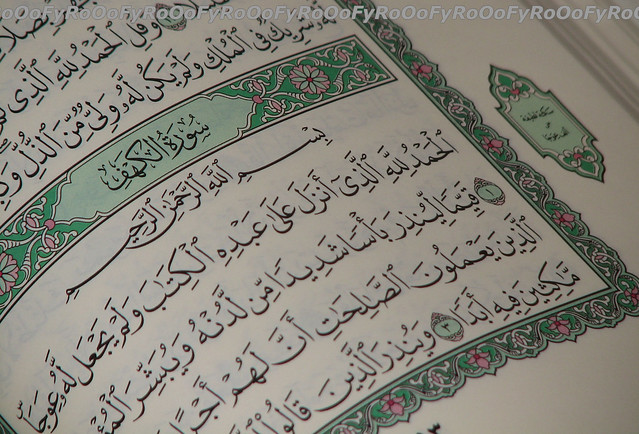 OoFyRoOoFyRoOoFyRoOoFyRoOoFyRoOoFyRoOoFyRoOoFyRoOoFyRo
وَقُلِ ٱلْحَمْدُ لِلَّهِ ٱلَّذِى
شَرِيكٌ فِى ٱلْمُلْكِ وَلَمْ يَكُن لَّهُۥ وَلِىٌّ مِّنَ ٱلذُّلِّ
سُورَةُ الكَهْفِ
بِسْمِ ٱللَّهِ ٱلرَّحْمَٰنِ ٱلرَّحِيمِ
ٱلْحَمْدُ لِلَّهِ ٱلَّذِىٓ أَنزَلَ عَلَىٰ عَبْدِهِ ٱلْكِتَٰبَ وَلَمْ يَجْعَل لَّهُۥ عِوَجَاۜ
١ قَيِّمًا لِّيُنذِرَ بَأْسًا شَدِيدًا مِّن لَّدُنْهُ وَيُبَشِّرَ
ٱلَّذِينَ يَعْمَلُونَ ٱلصَّٰلِحَٰتِ أَنَّ لَهُمْ أَجْرًا
مَّٰكِثِينَ فِيهِ أَبَدًا ٣ وَيُنذِرَ ٱلَّذِينَ قَالُوا۟